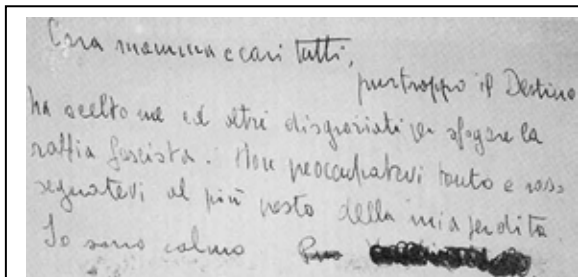 Cara mamma e cari tutti,
purtroppo il Destino
ha scelto me ed altri disgraziati per sfogare la
rabbia fascista. Non preoccupatevi tanto e rass
segnatevi al più presto della mia perdita.
Io sono calmo